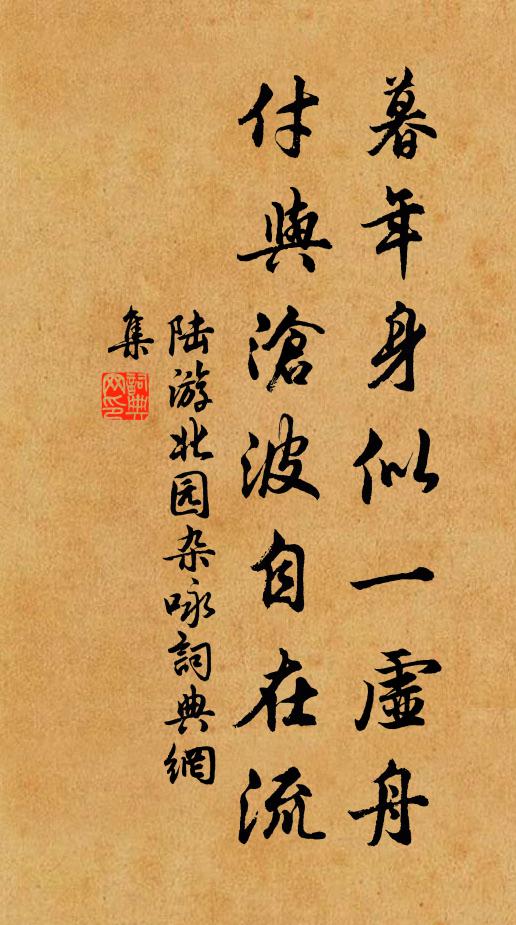 暮年身似一虛舟
付與滄波自在流
陆游北园杂咏詞典網
集
詞典
网印